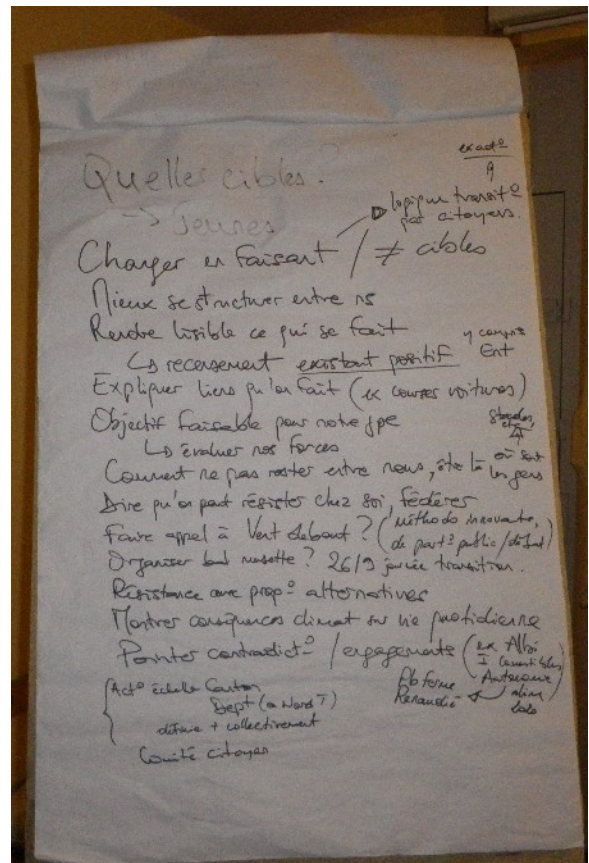 Quelles cibles ?
→ Jeunes
logique transit°
par citoyens.
Changer en faisant / ≠ cibles
Mieux se structurer entre ns
Rendre lisible ce qui se fait
↳ recensement existant positif y compris Ent
Expliquer liens qu'on fait (ex courses voitures)
Objectif faisable pour notre gpe
↳ évaluer nos forces
Comment ne pas rester entre nous, être là où sont les gens
Dire qu'on peut résister chez soi, fédérer
Faire appel à Vent debout ? (méthode innovante, de part° public/débat)
Organiser bal musette ? 26/9 journée transition.
Résistance avec prop° alternatives
Montrer conséquences climat sur vie quotidienne
Pointer contradict° / engagements (ex Albi
Autonome alim
Pb ferme
Act° échelle Canton
Dept (a Nord T)
+ collectivement
Comité citoyen